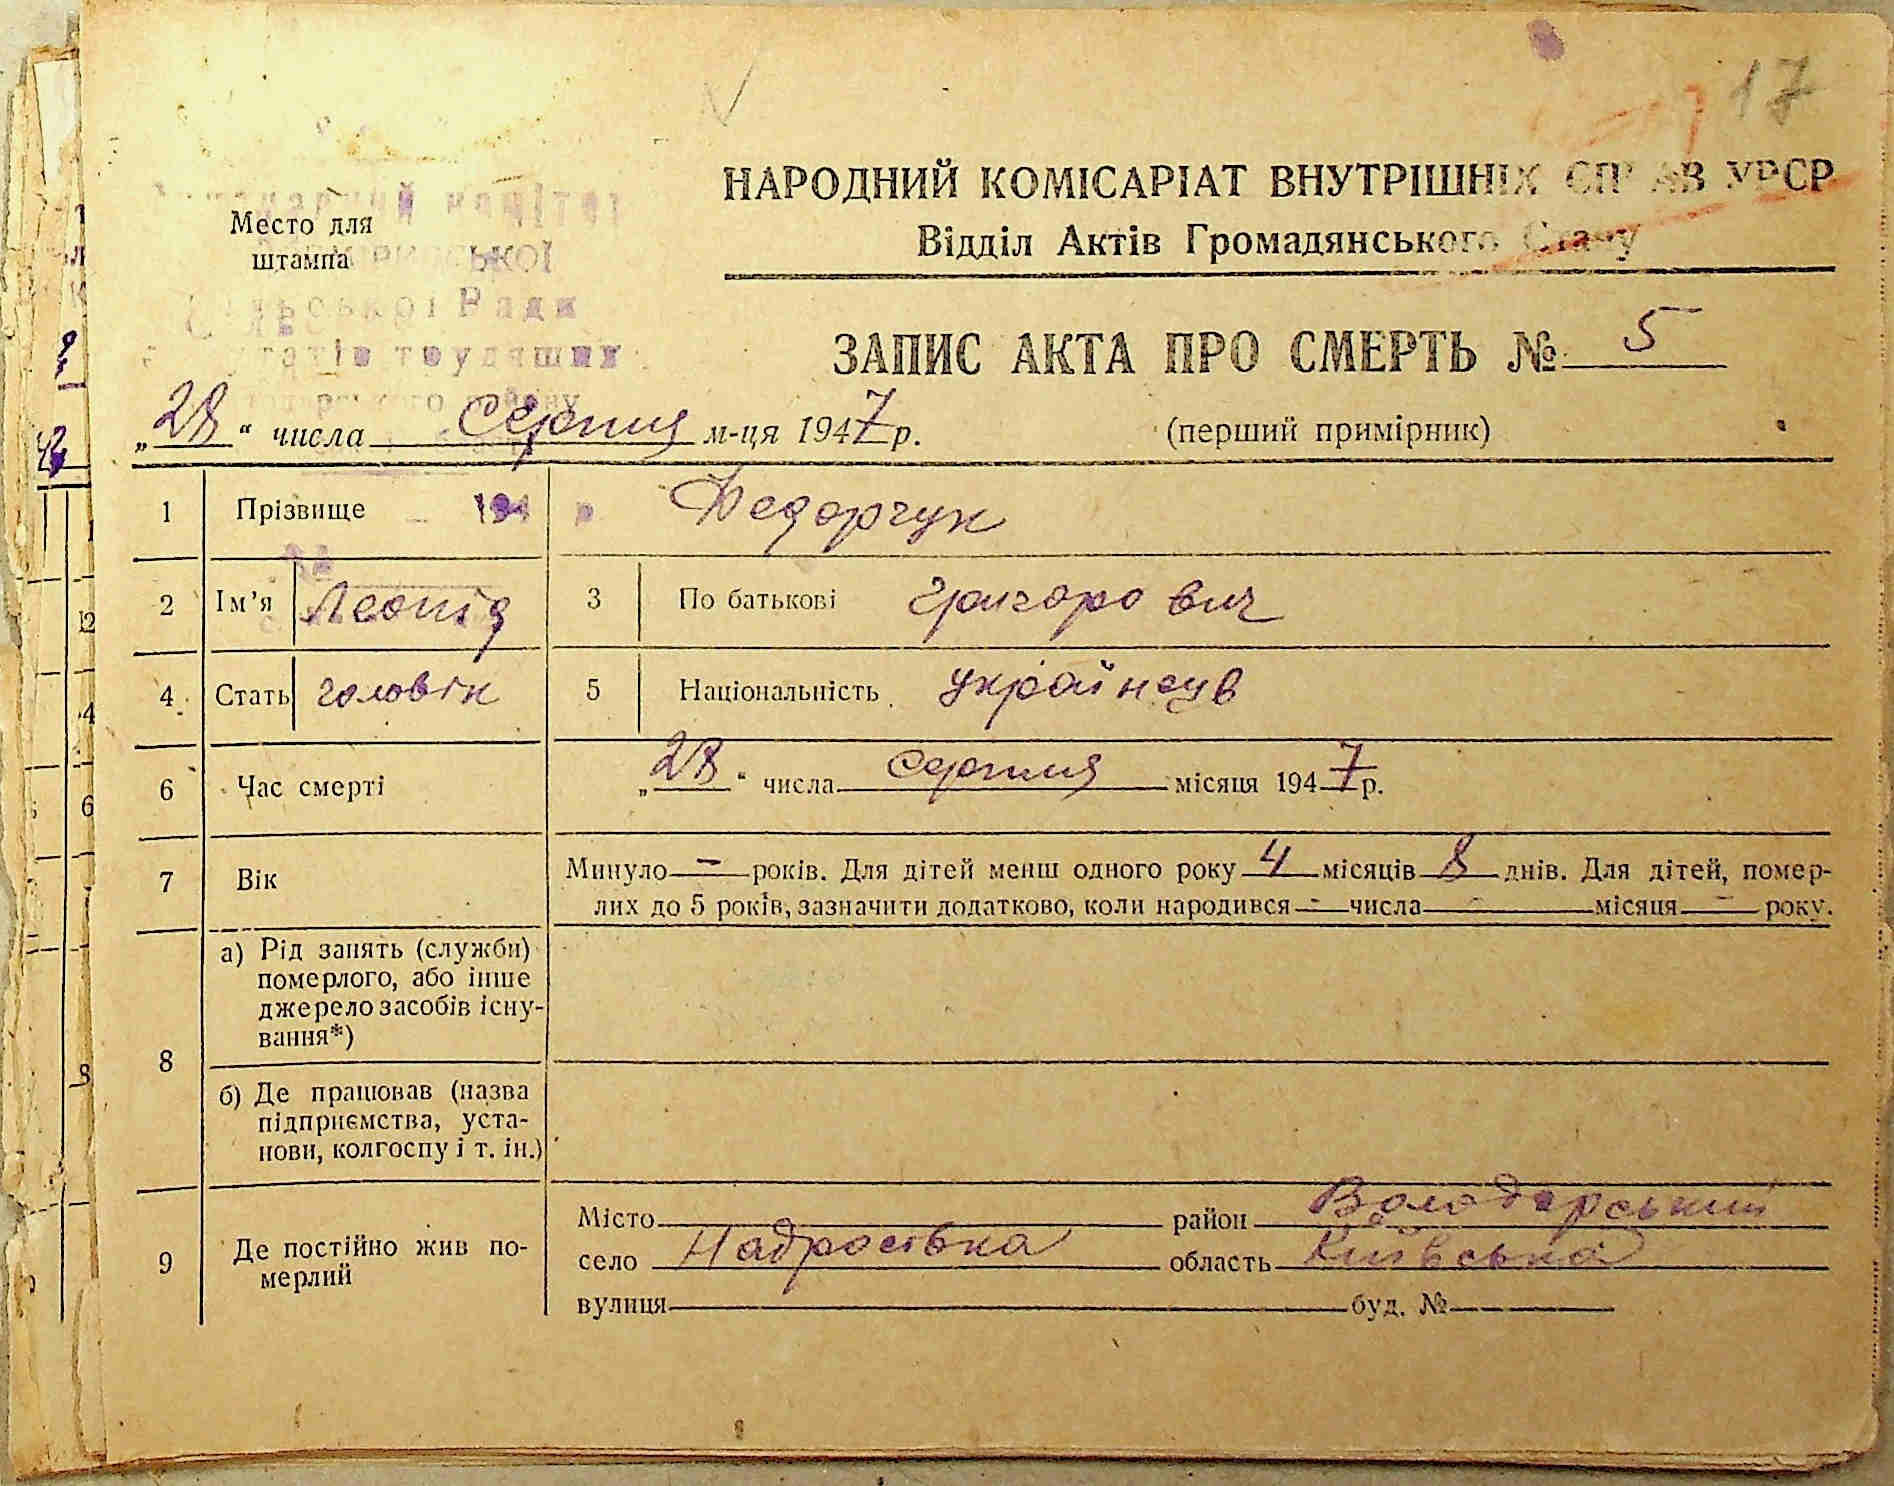 17
НАРОДНИЙ КОМІСАРІАТ ВНУТРІШНІХ СПРАВ УРСР
Відділ Актів Громадянського Стану
Место для
штампа
Сільської Ради
трудящих
ЗАПИС АКТА ПРО СМЕРТЬ № 5
„28“ числа Серпня м-ця 1947 р.
(перший примірник)
1 Прізвище Федорчук
194 р
2 Ім'я Леонід 3 По батькові Григорович
4 Стать чоловік 5 Національність українець
6 Час смерті „28“ числа Серпня місяця 1947 р.
7 Вік Минуло — років. Для дітей менш одного року 4 місяців 8 днів. Для дітей, помер-
лих до 5 років, зазначити додатково, коли народився — числа — місяця — року.
8 а) Рід занять (служби)
померлого, або інше
джерело засобів існу-
вання*)
б) Де працював (назва
підприємства, уста-
нови, колгоспу і т. ін.)
9 Де постійно жив по-
мерлий
Місто район Володарський
село Надросівка область Київська
вулиця буд. №